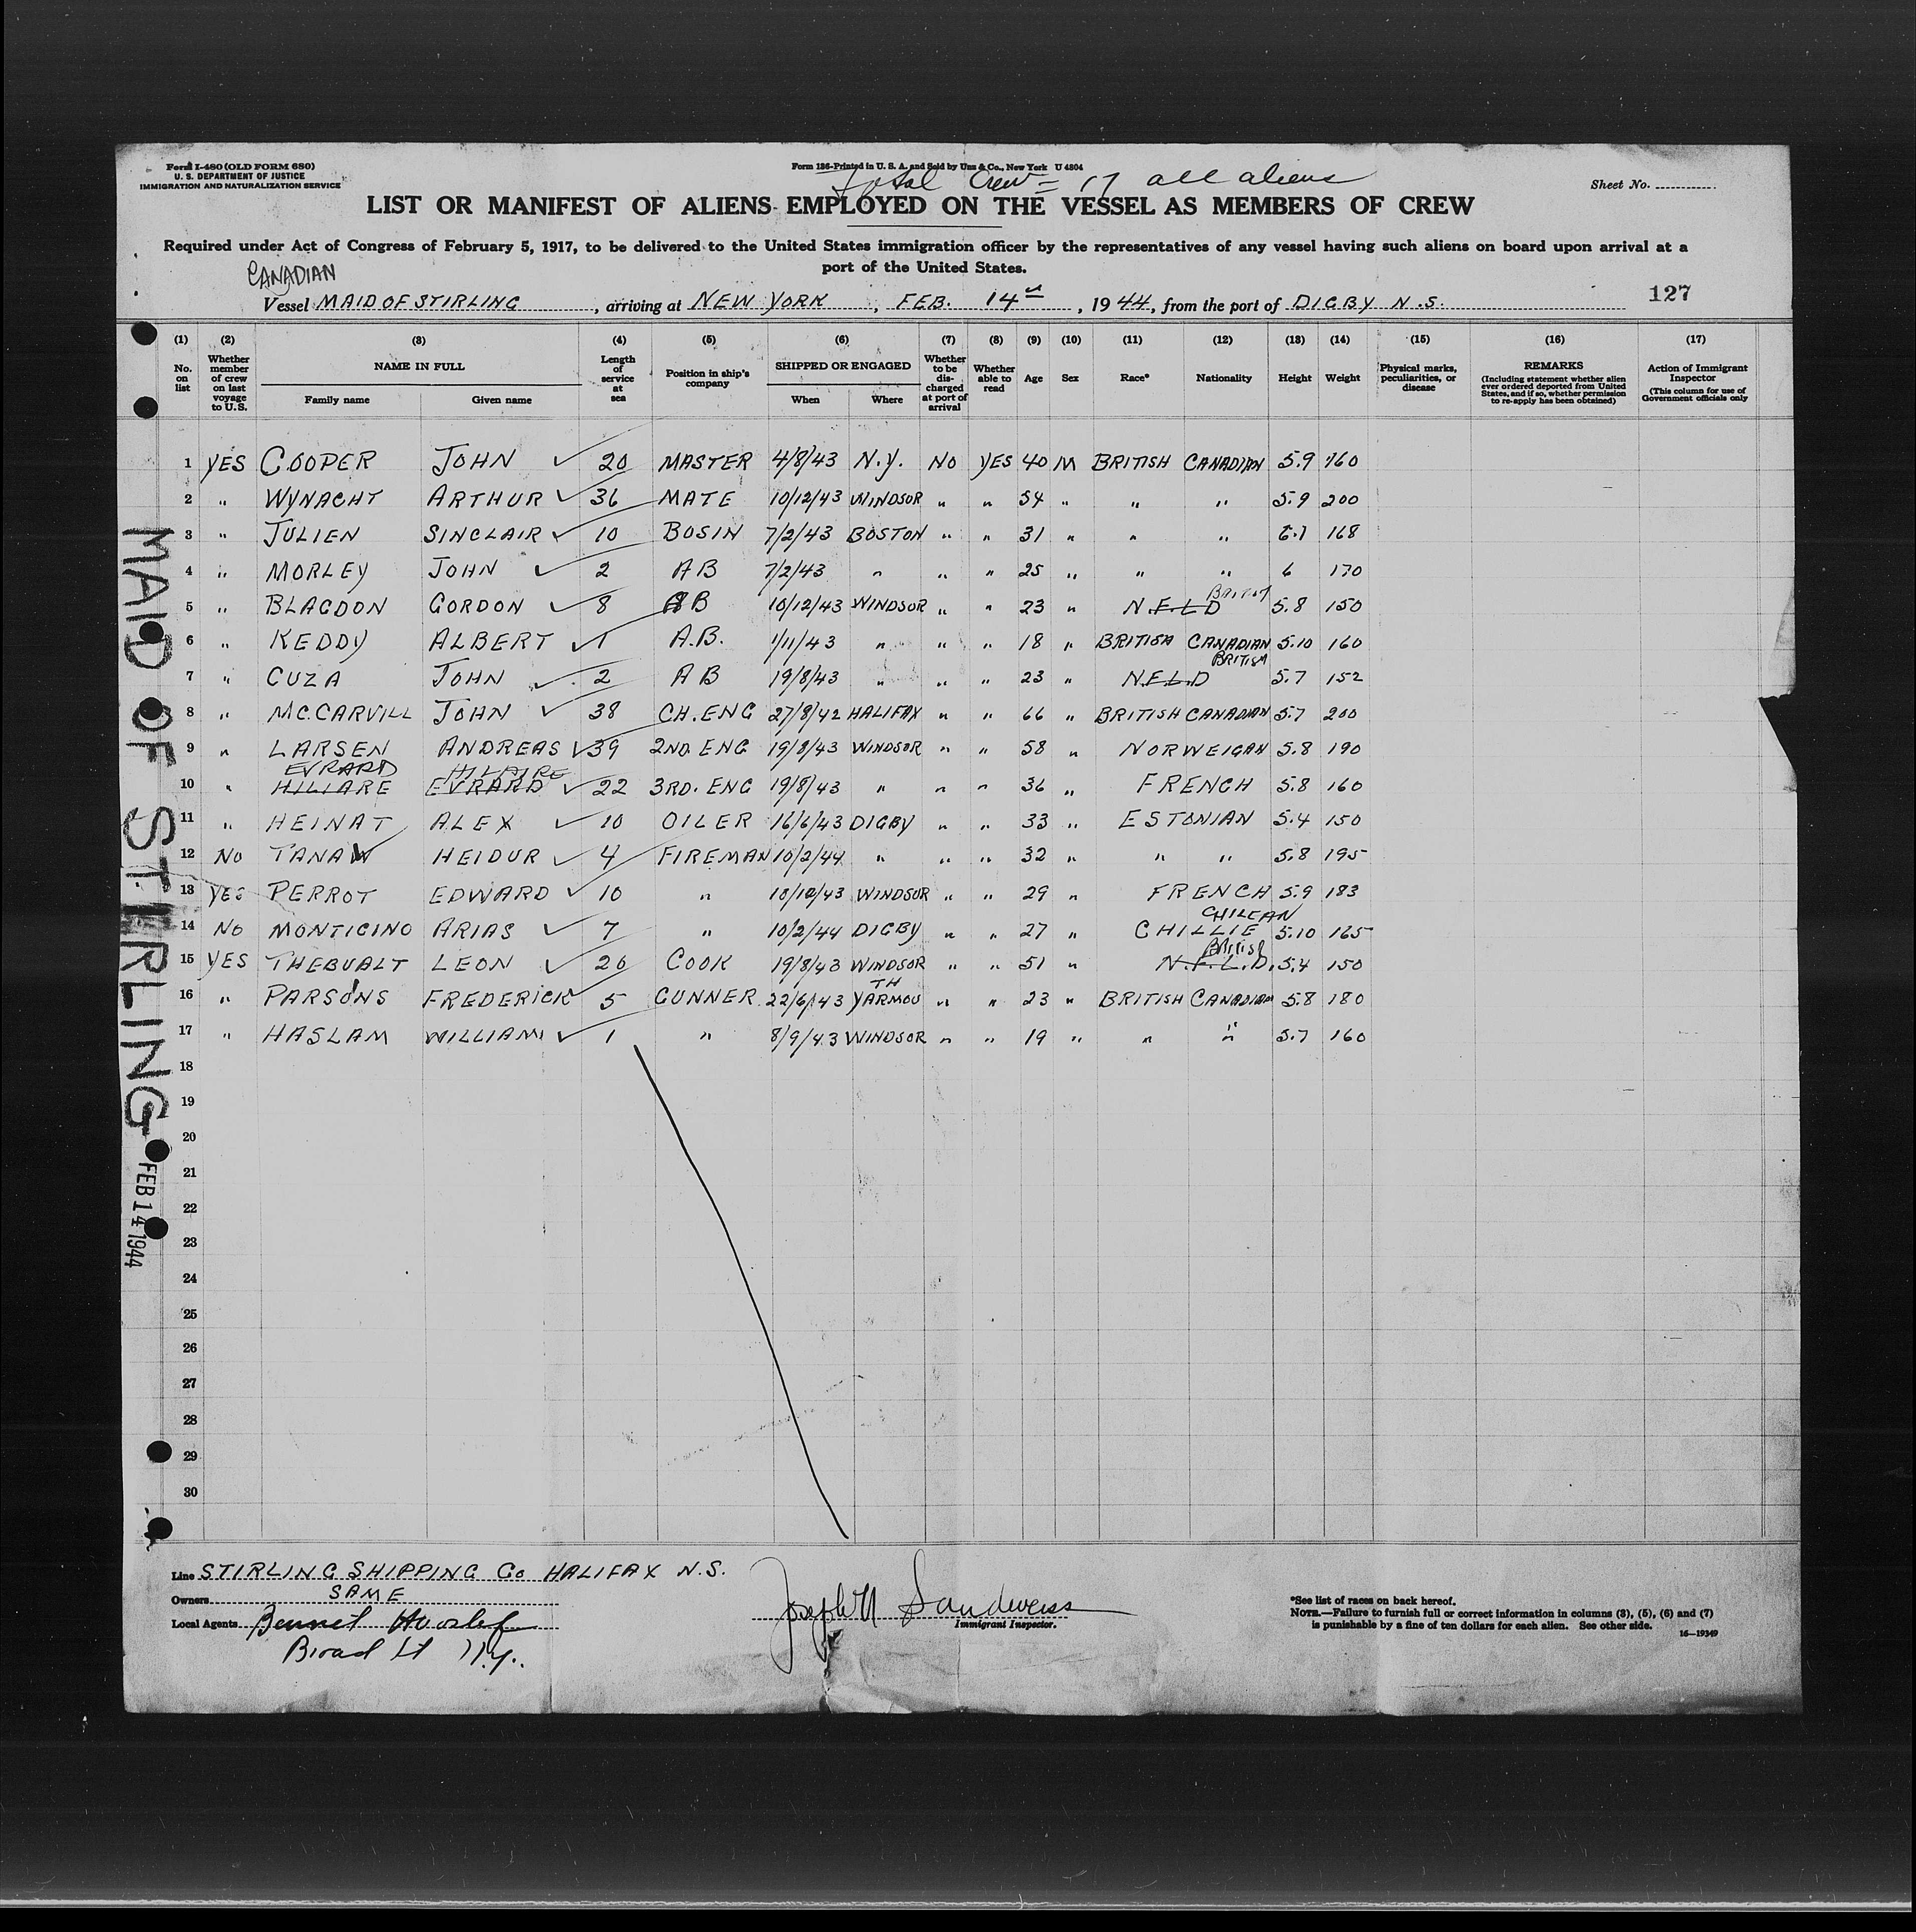 Form I-480 (OLD FORM 680)
U. S. DEPARTMENT OF JUSTICE
IMMIGRATION AND NATURALIZATION SERVICE
Form 186-Printed in U. S. A. and Sold by Unz & Co., New York U 4804
Total Crew = 17 all aliens
Sheet No.
LIST OR MANIFEST OF ALIENS EMPLOYED ON THE VESSEL AS MEMBERS OF CREW
Required under Act of Congress of February 5, 1917, to be delivered to the United States immigration officer by the representatives of any vessel having such aliens on board upon arrival at a
port of the United States.
CANADIAN
Vessel MAID OF STIRLING, arriving at NEW YORK, FEB. 14th, 1944, from the port of DIGBY N.S.
127
(1) (2) (3) (4) (5) (6) (7) (8) (9) (10) (11) (12) (13) (14) (15) (16) (17)
No. on list
Whether member of crew on last voyage to U.S.
NAME IN FULL
Family name Given name
Length of service at sea
Position in ship's company
SHIPPED OR ENGAGED
When Where
Whether to be discharged at port of arrival
Whether able to read
Age
Sex
Race*
Nationality
Height
Weight
Physical marks, peculiarities, or disease
REMARKS
(Including statement whether alien ever ordered deported from United States, and if so, whether permission to re-apply has been obtained)
Action of Immigrant Inspector
(This column for use of Government officials only
1 YES COOPER JOHN ✓ 20 MASTER 4/8/43 N.Y. NO YES 40 M BRITISH CANADIAN 5.9 160
2 " WYNACHT ARTHUR ✓ 36 MATE 10/12/43 WINDSOR " " 54 " " " 5.9 200
3 " JULIEN SINCLAIR ✓ 10 BOSIN 7/2/43 BOSTON " " 31 " " " 6.1 168
4 " MORLEY JOHN ✓ 2 AB 7/2/43 " " " 25 " " " 6 170
British
5 " BLAGDON GORDON ✓ 8 AB 10/12/43 WINDSOR " " 23 " N.F.L.D 5.8 150
6 " KEDDY ALBERT ✓ 1 A.B. 1/11/43 " " " 18 " BRITISH CANADIAN 5.10 160
BRITISH
7 " CUZA JOHN ✓ 2 AB 19/8/43 " " " 23 " N.F.L.D 5.7 152
8 " MC.CARVILL JOHN ✓ 38 CH.ENG 27/8/42 HALIFAX " " 66 " BRITISH CANADIAN 5.7 200
9 " LARSEN ANDREAS ✓ 39 2ND. ENG 19/8/43 WINDSOR " " 58 " NORWEIGAN 5.8 190
EVRARD HILAIRE
10 " HILIARE EVRARD ✓ 22 3RD. ENG 19/8/43 " " " 36 " FRENCH 5.8 160
11 " HEINAT ALEX ✓ 10 OILER 16/6/43 DIGBY " " 33 " ESTONIAN 5.4 150
12 NO TANAW HEIDUR ✓ 4 FIREMAN 10/2/44 " " " 32 " " " 5.8 195
13 YES PERROT EDWARD ✓ 10 " 10/10/43 WINDSOR " " 29 " FRENCH 5.9 183
CHILEAN
14 NO MONTICINO ARIAS ✓ 7 " 10/2/44 DIGBY " " 27 " CHILLIE 5.10 165
British
15 YES THEBUALT LEON ✓ 26 COOK 19/8/43 WINDSOR " " 51 " N.F.L.D. 5.4 150
16 " PARSONS FREDERICK ✓ 5 GUNNER 22/6/43 YARMOUTH " " 23 " BRITISH CANADIAN 5.8 180
17 " HASLAM WILLIAM ✓ 1 " 8/9/43 WINDSOR " " 19 " " " 5.7 160
18
19
20
21
22
23
24
25
26
27
28
29
30
MAID OF STIRLING
FEB 14 1944
Line STIRLING SHIPPING Co HALIFAX N.S.
Owners SAME
Local Agents Bennet
Broad St N.Y.
Joseph Sandweiss
Immigrant Inspector.
*See list of races on back hereof.
NOTE.—Failure to furnish full or correct information in columns (3), (5), (6) and (7)
is punishable by a fine of ten dollars for each alien. See other side.
16—19349